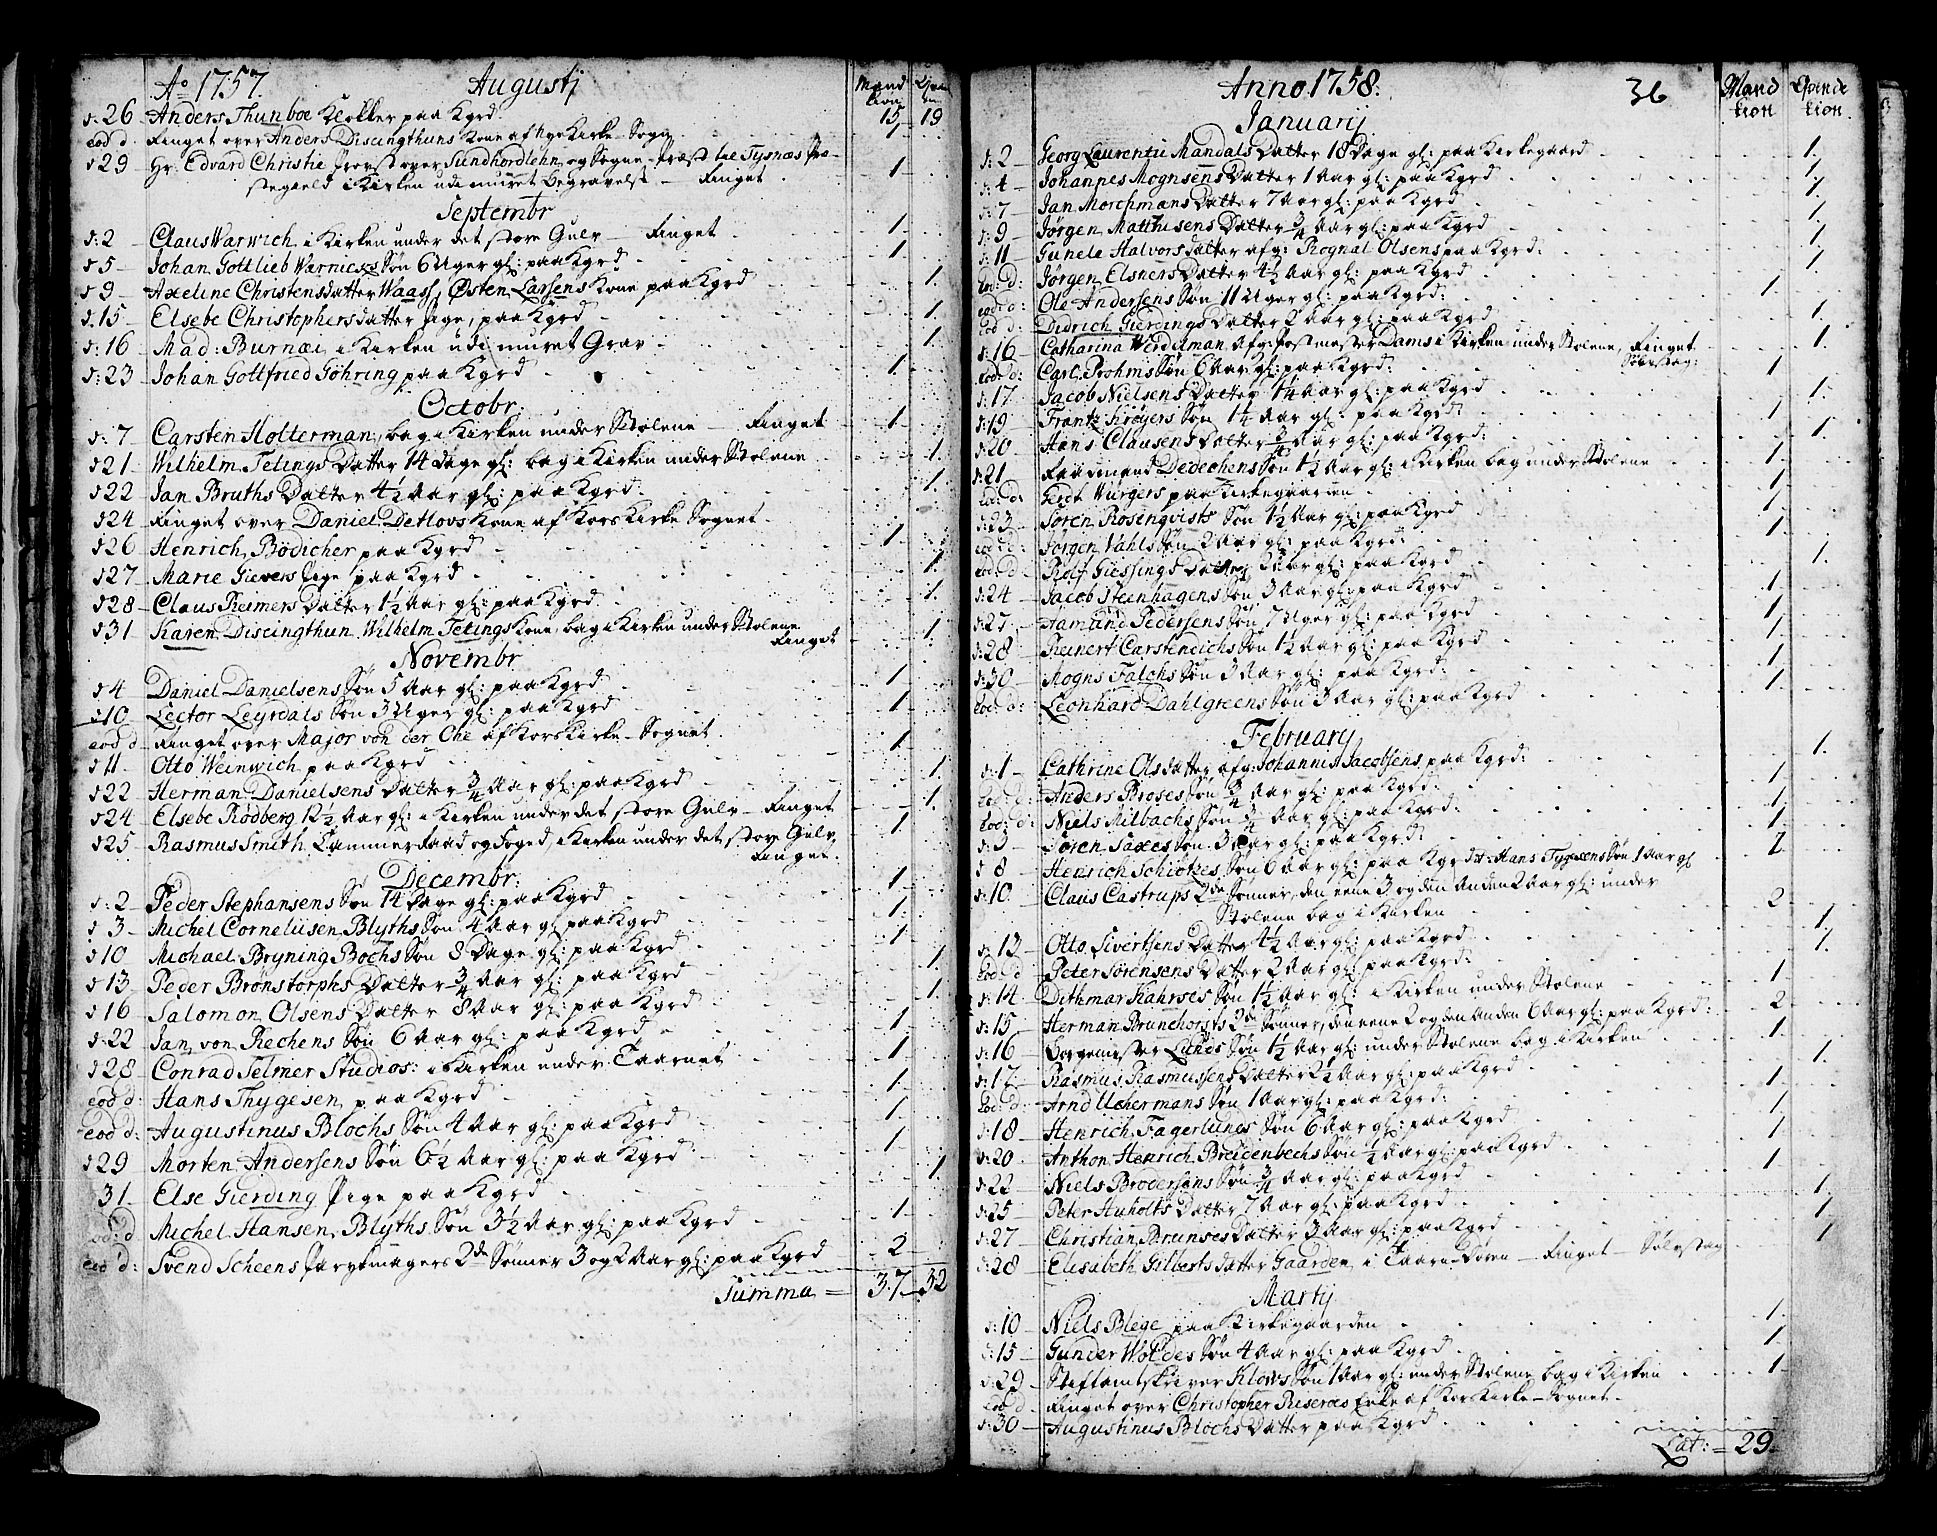 Ao 1757. Augustj
Mand kion Qvin
d: 26 Anders Thunboe Klokker paa Kgrd 15 19
eod d: Ringet over Anders Discingthuns Kone af Nye Kirke-Sogn
d 29 Hr. Edvard Christie Provst over Sundhordlehn og Sogne-Præst til Tysnæs Præ- 1
stegield i Kirken udi muret Begravelse Ringet
Septembr
d: 2 Claus Warwich i Kirken under det store Gulv Ringet 1
d 5 Johan Gottlieb Warnickes Søn 6 Uger gl: paa Kgrd 1
d 9 Axeline Christensdatter Waass, Østen Larsens Kone paa Kgrd 1
d. 15 Elsebe Christophersdatter Pige, paa Kgrd 1
d: 16 Mad: Burnæi i Kirken udi muret Grav 1
d: 23 Johan Gottfried Göhring paa Kgrd 1
Octobr
d: 7 Carsten Holterman, bag i Kirken under Stolene Ringet 1
d 21 Wilhelm Tetings Datter 14 dage gl: bag i Kirken under Stolene 1
d 22 Jan Bruths Datter 4½ Aar gl: paa Kgrd: 1
d 24 Ringet over Daniel Detlovs Kone af Kors Kirke Sognet
d 26 Henrich Bödicher paa Kgrd 1
d 27 Marie Gievers Pige paa Kgrd 1
d 28 Claus Reimers Datter 1½ Aar gl: paa Kgrd 1
d 31 Karen Discingthun Wilhelm Tetings Kone bag i Kirken under Stolene 1
Ringet
Novembr
d 4 Daniel Danielsens Søn 5 Aar gl: paa Kgrd 1
d 10 Lector Leyrdals Søn 3 Uger gl: paa Kgrd 1
eod d Ringet over Major von der Ohe af Kors Kirke-Sognet
d 11 Otto Weinwich paa Kgrd 1
d 22 Herman Danielsens Datter ¾ Aar gl: paa Kgrd 1
d 24 Elsebe Rödberg 12½ Aar gl: i Kirken under det store Gulv Ringet 1
d 25 Rasmus Smith Cammerraad og Foged, i Kirken under det store Gulv 1
Ringet.
Decembr:
d: 2 Peder Stephansens Søn 14 Dage gl: paa Kgrd 1
d 3 Michel Corneliisen Blyths Søn 4 Aar gl paa Kgrd 1
d 10 Michael Bryning Bochs Søn 8 Dage gl: paa Kgrd 1
d 13 Peder Brönstorphs Datter ¾ Aar gl: paa Kgrd 1
d 16 Salomon Olsens Datter 8 Aar gl: paa Kgrd 1
d: 22 Jan von Rechens Søn 6 Aar gl: paa Kgrd 1
d 28 Conrad Telmer Studios: i Kirken under Taarnet 1
eod d: Hans Thygesen paa Kgrd 1
eod d: Augustinus Blochs Søn 4 Aar gl: paa Kgrd 1
d 29 Morten Andersens Søn 6½ Aar gl: paa Kgrd 1
31 Else Gierding Pige paa Kgrd 1
eod: d Michel Hansen Blyths Søn 3½ Aar gl: paa Kgrd 1
eod d: Svend Scheens Parykmagers 2de Sønner 3 og 2 Aar gl: paa Kgrd 2
Summa = 37 32
Anno 1758: 36
Mand kion Qvinde kion.
Januarij
d: 2 Georg Laurentii Mandals Datter 18 Dage gl: paa Kirkegaard 1.
d: 4 Johannes Mognsens Datter 1 Aar gl: paa Kgrd 1
d: 7 Jan Morchmans Datter 7 Aar gl: paa Kgrd 1
d: 9 Jörgen Matthisens Datter ¾ Aar gl: paa Kgrd 1
d: 11 Gunele Halvorsdatter afg: Rognal Olsens paa Kgrd: 1
eod: d: Jørgen Elsners Datter 4½ Aar gl: paa Kgrd 1
eod: d: Ole Andersens Søn 11 Uger gl: paa Kgrd: 1
eod d: Didrich Gierdings Datter 2 Aar gl: paa Kgrd 1
d: 16 Catharina Werdelman Afg: Postmester Dams i Kirken under Stolene, Ringet 1
Sølvstag:
eod: d: Carl Prohms Søn 6 Aar gl: paa Kgrd: 1
d: 17 Jacob Nielsens Datter 1¼ Aar gl: paa Kgrd 1
d: 19 Frantz Krøyers Søn 1¼ Aar gl: paa Kgrd 1
d: 20 Hans Clausens Datter ¾ Aar gl: paa Kgrd: 1
d: 21 Raadmand Dedechens Søn 1½ Aar gl: i Kirken bag under Stolene 1
eod: d: Gerdt Würgers paa Kirkegaarden 1
d: 23 Søren Rosenqvists Søn 1½ Aar gl: paa Kgrd 1
eod d: Jörgen Vahls Søn 2 Aar gl: paa Kgrd: 1
eod: d Rolf Giessings Datter 2 Aar gl: paa Kgrd 1
d: 24 Jacob Steenhagens Søn 3 Aar gl: paa Kgrd 1
d: 27 Aamund Pedersens Søn 7 Uger gl: paa Kgrd 1
d: 28 Reinert Carstendichs Søn 1½ Aar gl: paa Kgrd 1
d: 30 Mogns Falchs Søn 3 Aar gl: paa Kgrd: 1
eod: d: Leonhard Dahlgreens Søn 3 Aar gl: paa Kgrd 1
February
d: 1 Cathrine Olsdatter afg: Johannis Jacobsens paa Kgrd: 1.
eod: d: Anders Broses Søn ¾ Aar gl: paa Kgrd: 1
eod: d: Niels Milbachs Søn ¾ Aar gl: paa Kgrd: 1
d: 3 Søren Saxes Søn 3 Aar gl: paa Kgrd: 1
d 8 Henrich Schiötzes Søn 6 Aar gl: paa Kgrd It: Hans Tygesens Søn 1 Aar gl 2
d: 10 Claus Castrups 2de Sønner, den eene 3 og den Anden 2 Aar gl: under
Stolene bag i Kirken 2
d: 13 Otto Sivertsens Datter 4½ Aar gl: paa Kgrd 1.
eod: d Peter Sørensens Datter 2 Aar gl: paa Kgrd: 1.
d: 14 Dithmar Kahrses Søn 1½ Aar gl: i Kirken under Stolene 1
d: 15 Herman Brunchorsts 2de Sønner, den eene 2 og den Anden 6 Aar gl: paa Kgrd: 2
d: 16 Borgemester Lunds Søn 1½ Aar gl: under Stolene bag i Kirken 1
d: 17 Rasmus Rasmussens Datter 2½ Aar gl: paa Kgrd 1.
eod: d: Arnd Uchermans Søn 1 Aar gl: paa Kgrd: 1
d: 18 Henrich Fagerlunds Søn 6 Aar gl: paa Kgrd 1
d: 20 Anthon Henrich Breidenbechs Søn ½ Aar gl: paa Kgrd 1
d: 22 Niels Brodersens Søn ¾ Aar gl: paa Kgrd 1
d: 25 Peter Huholts Datter 7 Aar gl: paa Kgrd 1
d: 27 Christian Brunses Datter 3 Aar gl: paa Kgrd 1
d: 28 Elisabeth Gilbertsdatter Gaarden i Taarn-Døren Ringet Sølvstag 1
Martij
d: 10 Niels Blege paa Kirkegaarden 1.
d: 15 Gunder Woldes Søn 4 Aar gl: paa Kgrd 1
d: 29 Stiftamtskriver Klows Søn 1 Aar gl: under Stolene bag i Kirken 1
eod d Ringet over Christopher Riseros Enke af Kors Kirke-Sognet
d: 30 Augustinus Blochs Datter paa Kgrd
Lat: = 29